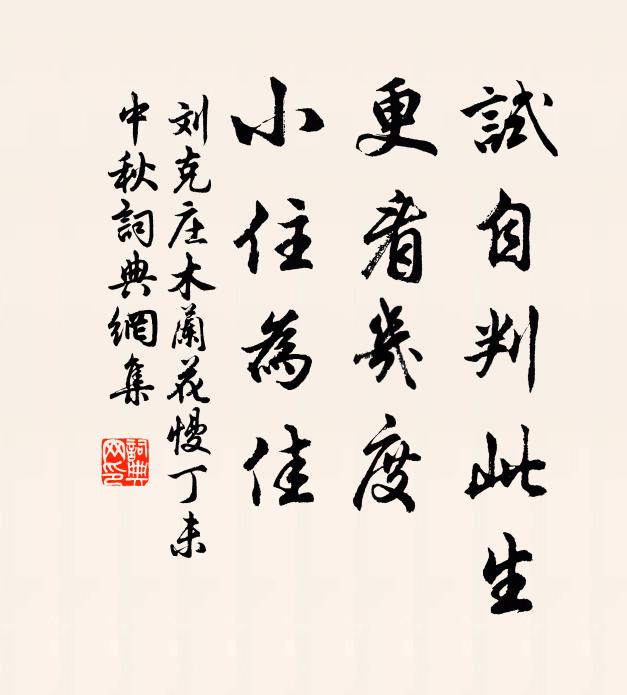 試自判此生
更看幾度
小住為佳
刘克庄木蘭花慢丁未
中秋詞典網集
詞典
网印